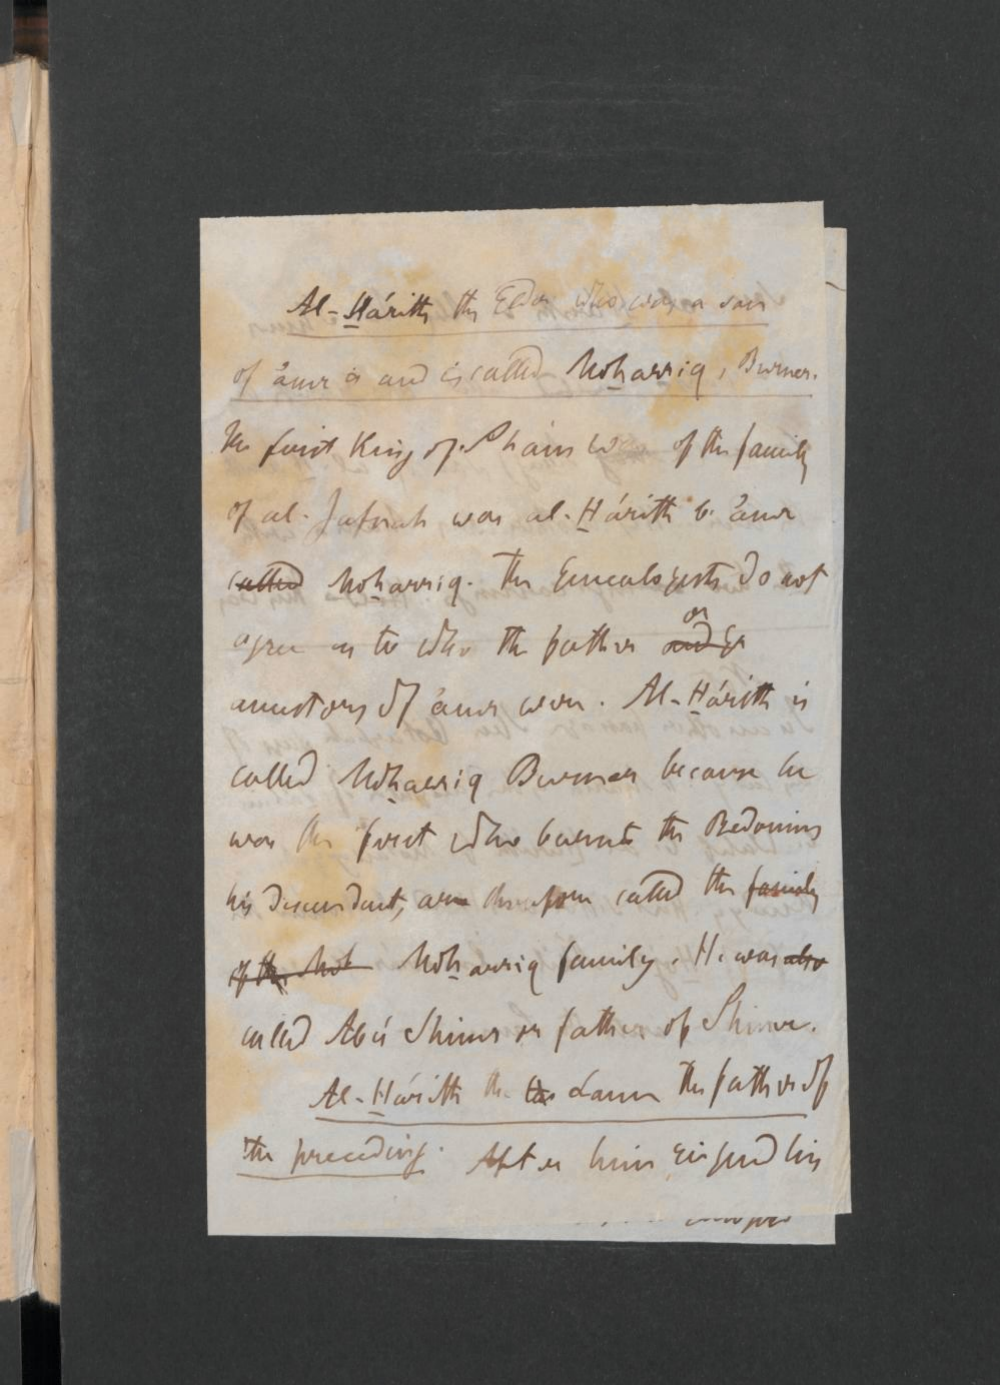 Al-Hárith the Elder who was a son
of 'amr is and is called Moharriq, Burner.
The first King of Shám was of the family
of al-Jafnah was al-Hárith b. 'amr
called Moharriq. The Genealogists do not
agree as to who the father and or
ancestors of 'amr were. Al-Hárith is
called Moharriq Burner because he
was the first who burnt the Bedouins
his descendants, are therefore called the family
of the Moh Moharriq family. He was also
called Abú Shimr or father of Shimr.
Al-Hárith the Lame the father of
the preceding. After him reigned his